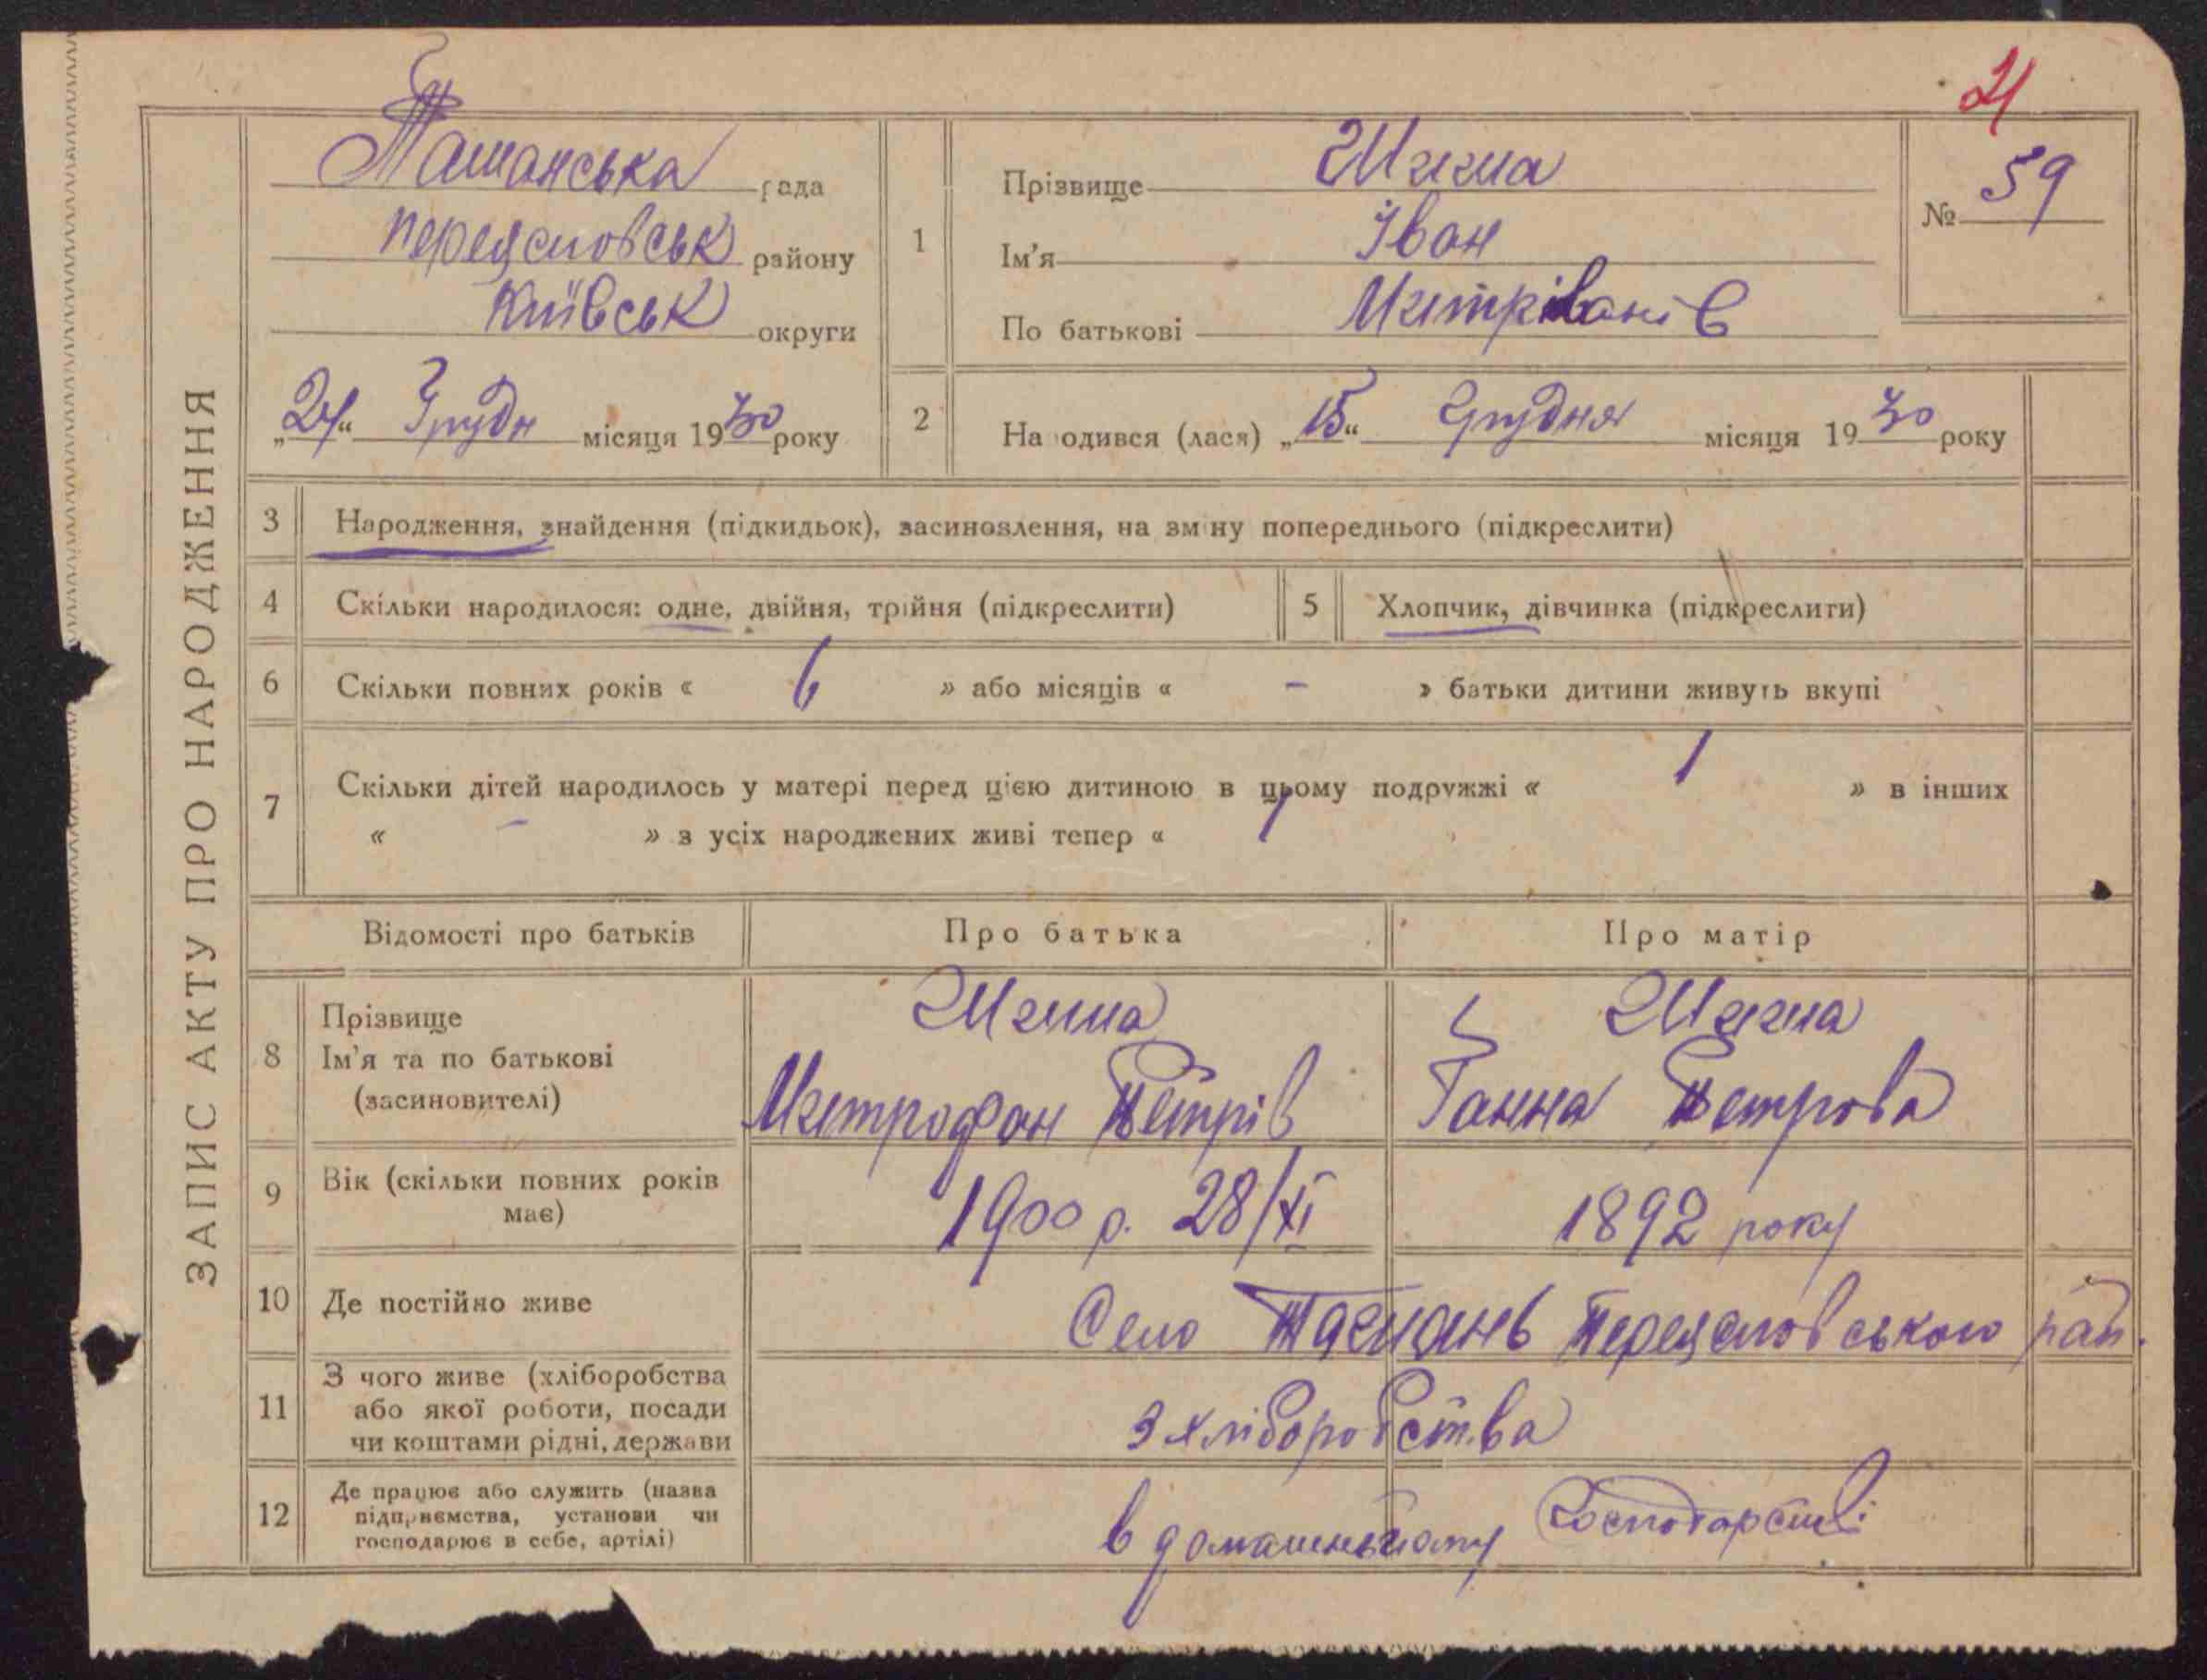 21
ЗАПИС АКТУ ПРО НАРОДЖЕННЯ
Ташанська рада
Переяславськ району
Київськ округи
„24“ Грудн місяця 1930 року
1
Прізвище
Ім'я Іван
По батькові
№ 59
2
На одився (лася) „15“ Грудня місяця 1930 року
3 Народження, знайдення (підкидьок), засиновлення, на зміну попереднього (підкреслити)
4 Скільки народилося: одне, двійня, трійня (підкреслити)
5 Хлопчик, дівчинка (підкреслити)
6 Скільки повних років « 6 » або місяців « – » батьки дитини живуть вкупі
7 Скільки дітей народилось у матері перед цією дитиною в цьому подружжі « 1 » в інших
« – » з усіх народжених живі тепер « 1
Відомості про батьків
Про батька
Про матір
8 Прізвище
Ім'я та по батькові
(засиновителі)
Митрофан Петрів
Ганна Петрова
9 Вік (скільки повних років
має)
1900 р. 28/XI
1892 року
10 Де постійно живе
Село Ташань Переяславського рай.
11 З чого живе (хліборобства
або якої роботи, посади
чи коштами рідні, держави
З хліборобства
12 Де працює або служить (назва
підприємства, установи чи
господарює в себе, артілі)
в домашньому господарстві